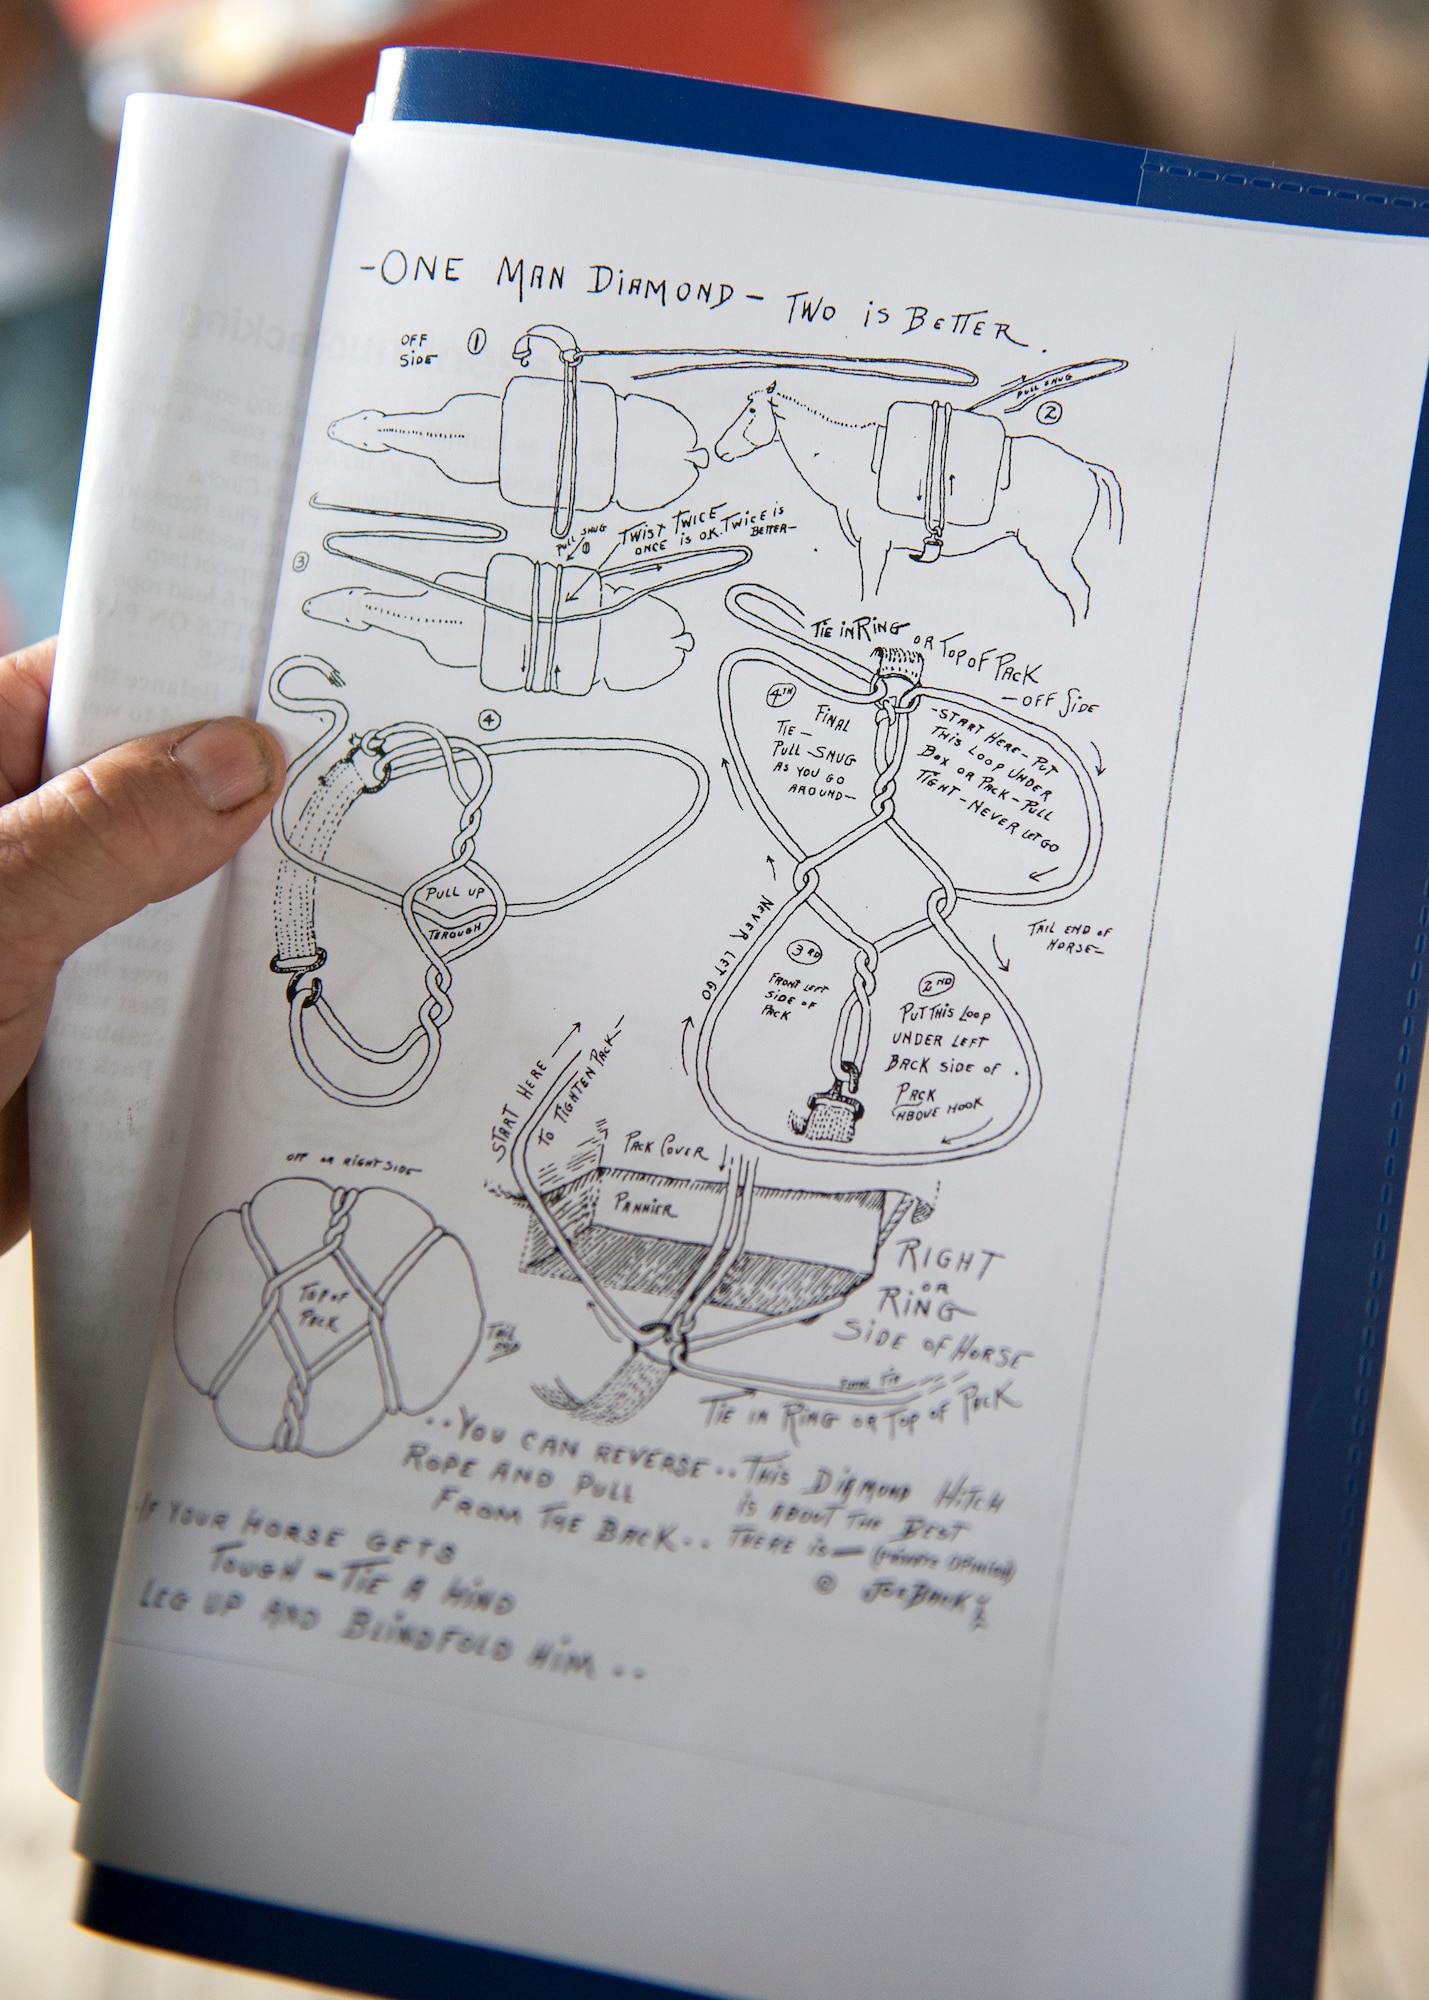 -ONE MAN DIAMOND- TWO IS BETTER.
OFF
SIDE
1
PULL SNUG
2
3
PULL SNUG
TWIST TWICE
ONCE IS O.K. TWICE IS
BETTER-
4
PULL UP
THROUGH
TIE IN RING OR TOP OF PACK
-OFF SIDE
4TH
FINAL
TIE-
PULL SNUG
AS YOU GO
AROUND-
-START HERE- PUT
THIS LOOP UNDER
BOX OR PACK- PULL
TIGHT-NEVER LET GO
NEVER LET GO
TAIL END OF
HORSE-
3RD
FRONT LEFT
SIDE OF
PACK
2ND
PUT THIS LOOP
UNDER LEFT
BACK SIDE OF
PACK
ABOVE HOOK
START HERE
TO TIGHTEN PACK-
PACK COVER
PANNIER
OFF OR RIGHT SIDE
TOP OF
PACK
TAIL
END
RIGHT
OR
RING
SIDE OF HORSE
FINAL TIE
TIE IN RING OR TOP OF PACK
..YOU CAN REVERSE..
ROPE AND PULL
FROM THE BACK..
THIS DIAMOND HITCH
IS ABOUT THE BEST
THERE IS- (PRIVATE OPINION)
© JOE BACK
IF YOUR HORSE GETS
TOUGH -TIE A HIND
LEG UP AND BLINDFOLD HIM..